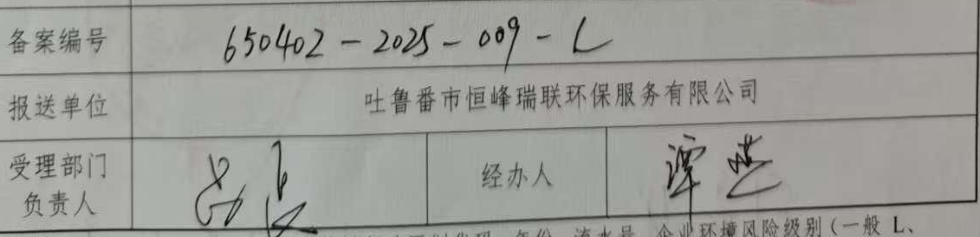 备案编号 650402-2025-009-L
报送单位 吐鲁番市恒峰瑞联环保服务有限公司
受理部门
负责人 经办人 谭
年份、流水号、企业环境风险级别(一般 L、